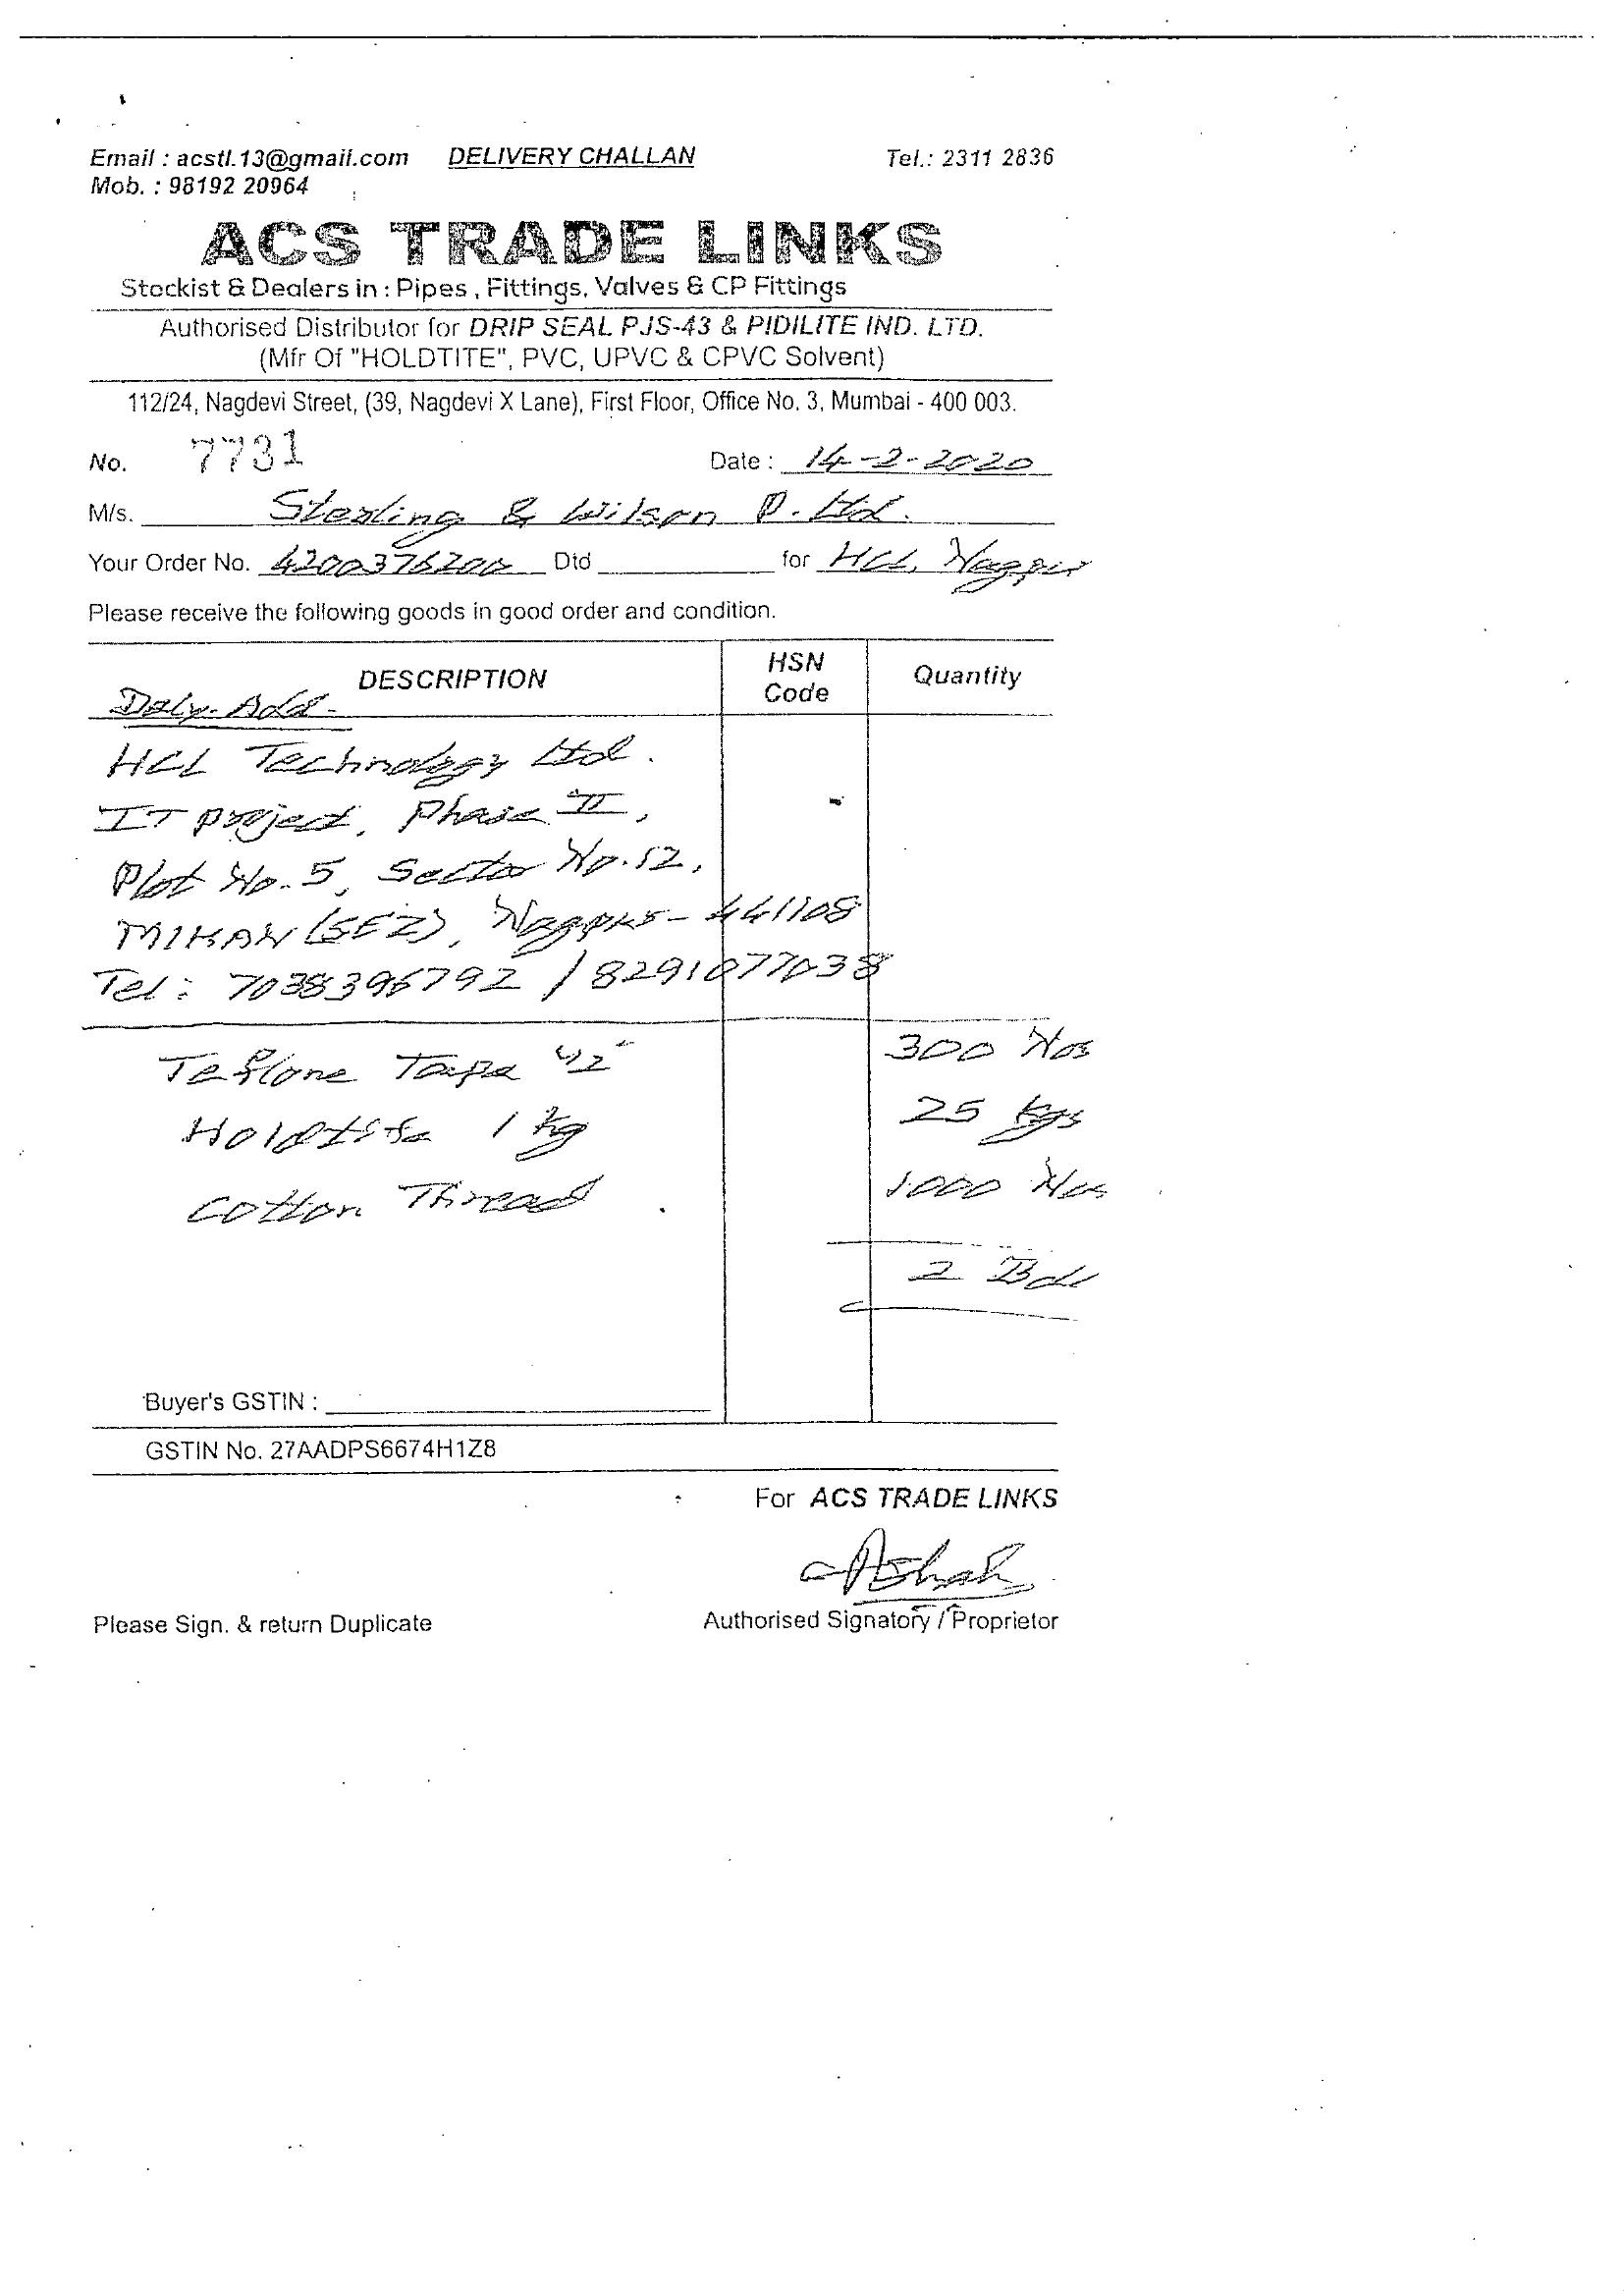 Email : acstl.13@gmail.com DELIVERY CHALLAN Tel.: 2311 2836
Mob. : 98192 20964
ACS TRADE LINKS
Stockist & Dealers in : Pipes , Fittings, Valves & CP Fittings
Authorised Distributor for DRIP SEAL PJS-43 & PIDILITE IND. LTD.
(Mfr Of "HOLDTITE", PVC, UPVC & CPVC Solvent)
112/24, Nagdevi Street, (39, Nagdevi X Lane), First Floor, Office No. 3, Mumbai - 400 003.
No. 7731 Date : 14-2-2020
M/s. Sterling & Wilson P. Ltd.
Your Order No. 4200376200 Dtd for HCL, Nagpur
Please receive the following goods in good order and condition.
DESCRIPTION HSN Code Quantity
Dely. Add-
HCL Technology Ltd.
IT project, Phase II,
Plot No. 5, Sector No. 12,
MIHAN (SEZ), Nagpur - 441108
Tel: 7038396792 / 8291077038
Teflone Tape 300 Nos
Holdtite 1 kg 25 kgs
Cotton Thread 1000 Nos
2 Bdl
Buyer's GSTIN :
GSTIN No. 27AADPS6674H1Z8
For ACS TRADE LINKS
Please Sign. & return Duplicate Authorised Signatory / Proprietor